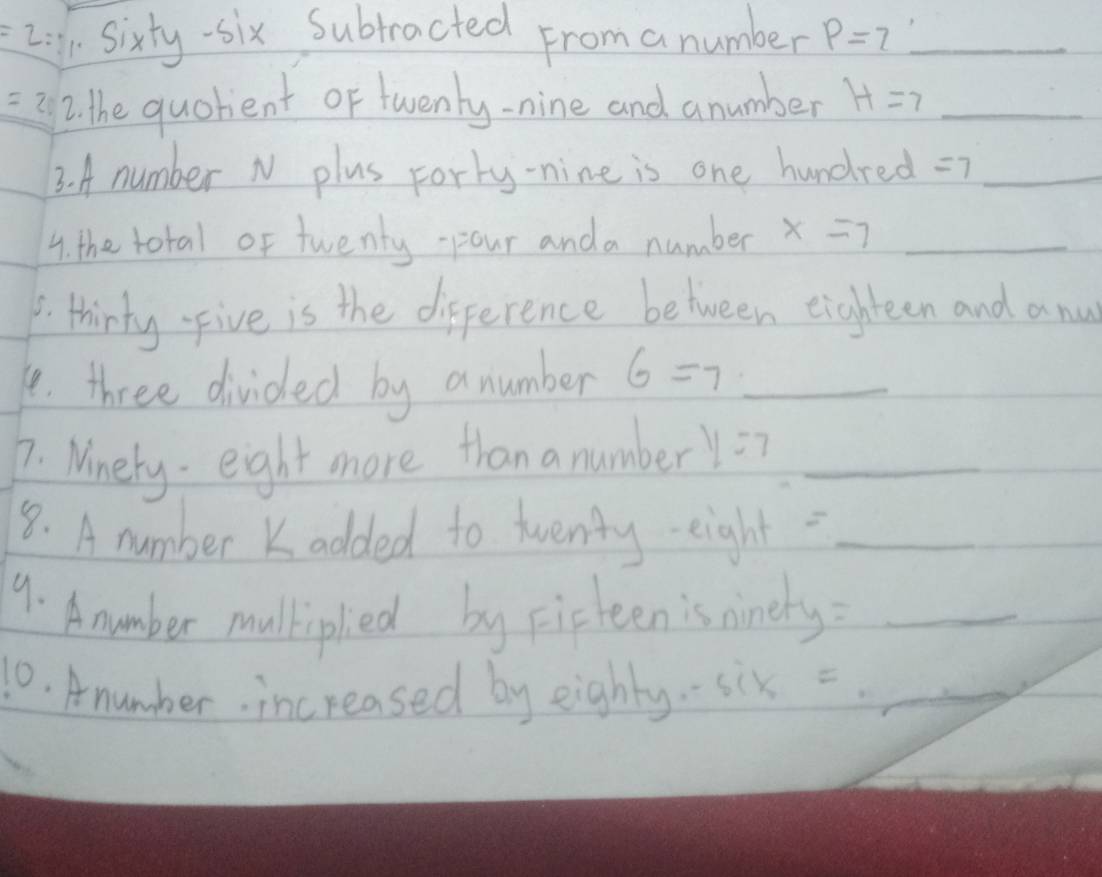 = 2:
1. Sixty-six Subtracted From a number P=7
= 2
2. the quotient OF twenty-nine and a number H =7
3. A number N plus Forty-nine is one hundred =7
4. the total OF twenty-Four and a number x =7
5. thirty-Five is the difference between eighteen and a nu
6. three divided by a number G =7
7. Ninety-eight more than a number Y =7
8. A number K added to twenty-eight =
9. A number multiplied by FiFteen is ninety =
10. A number increased by eighty-six =